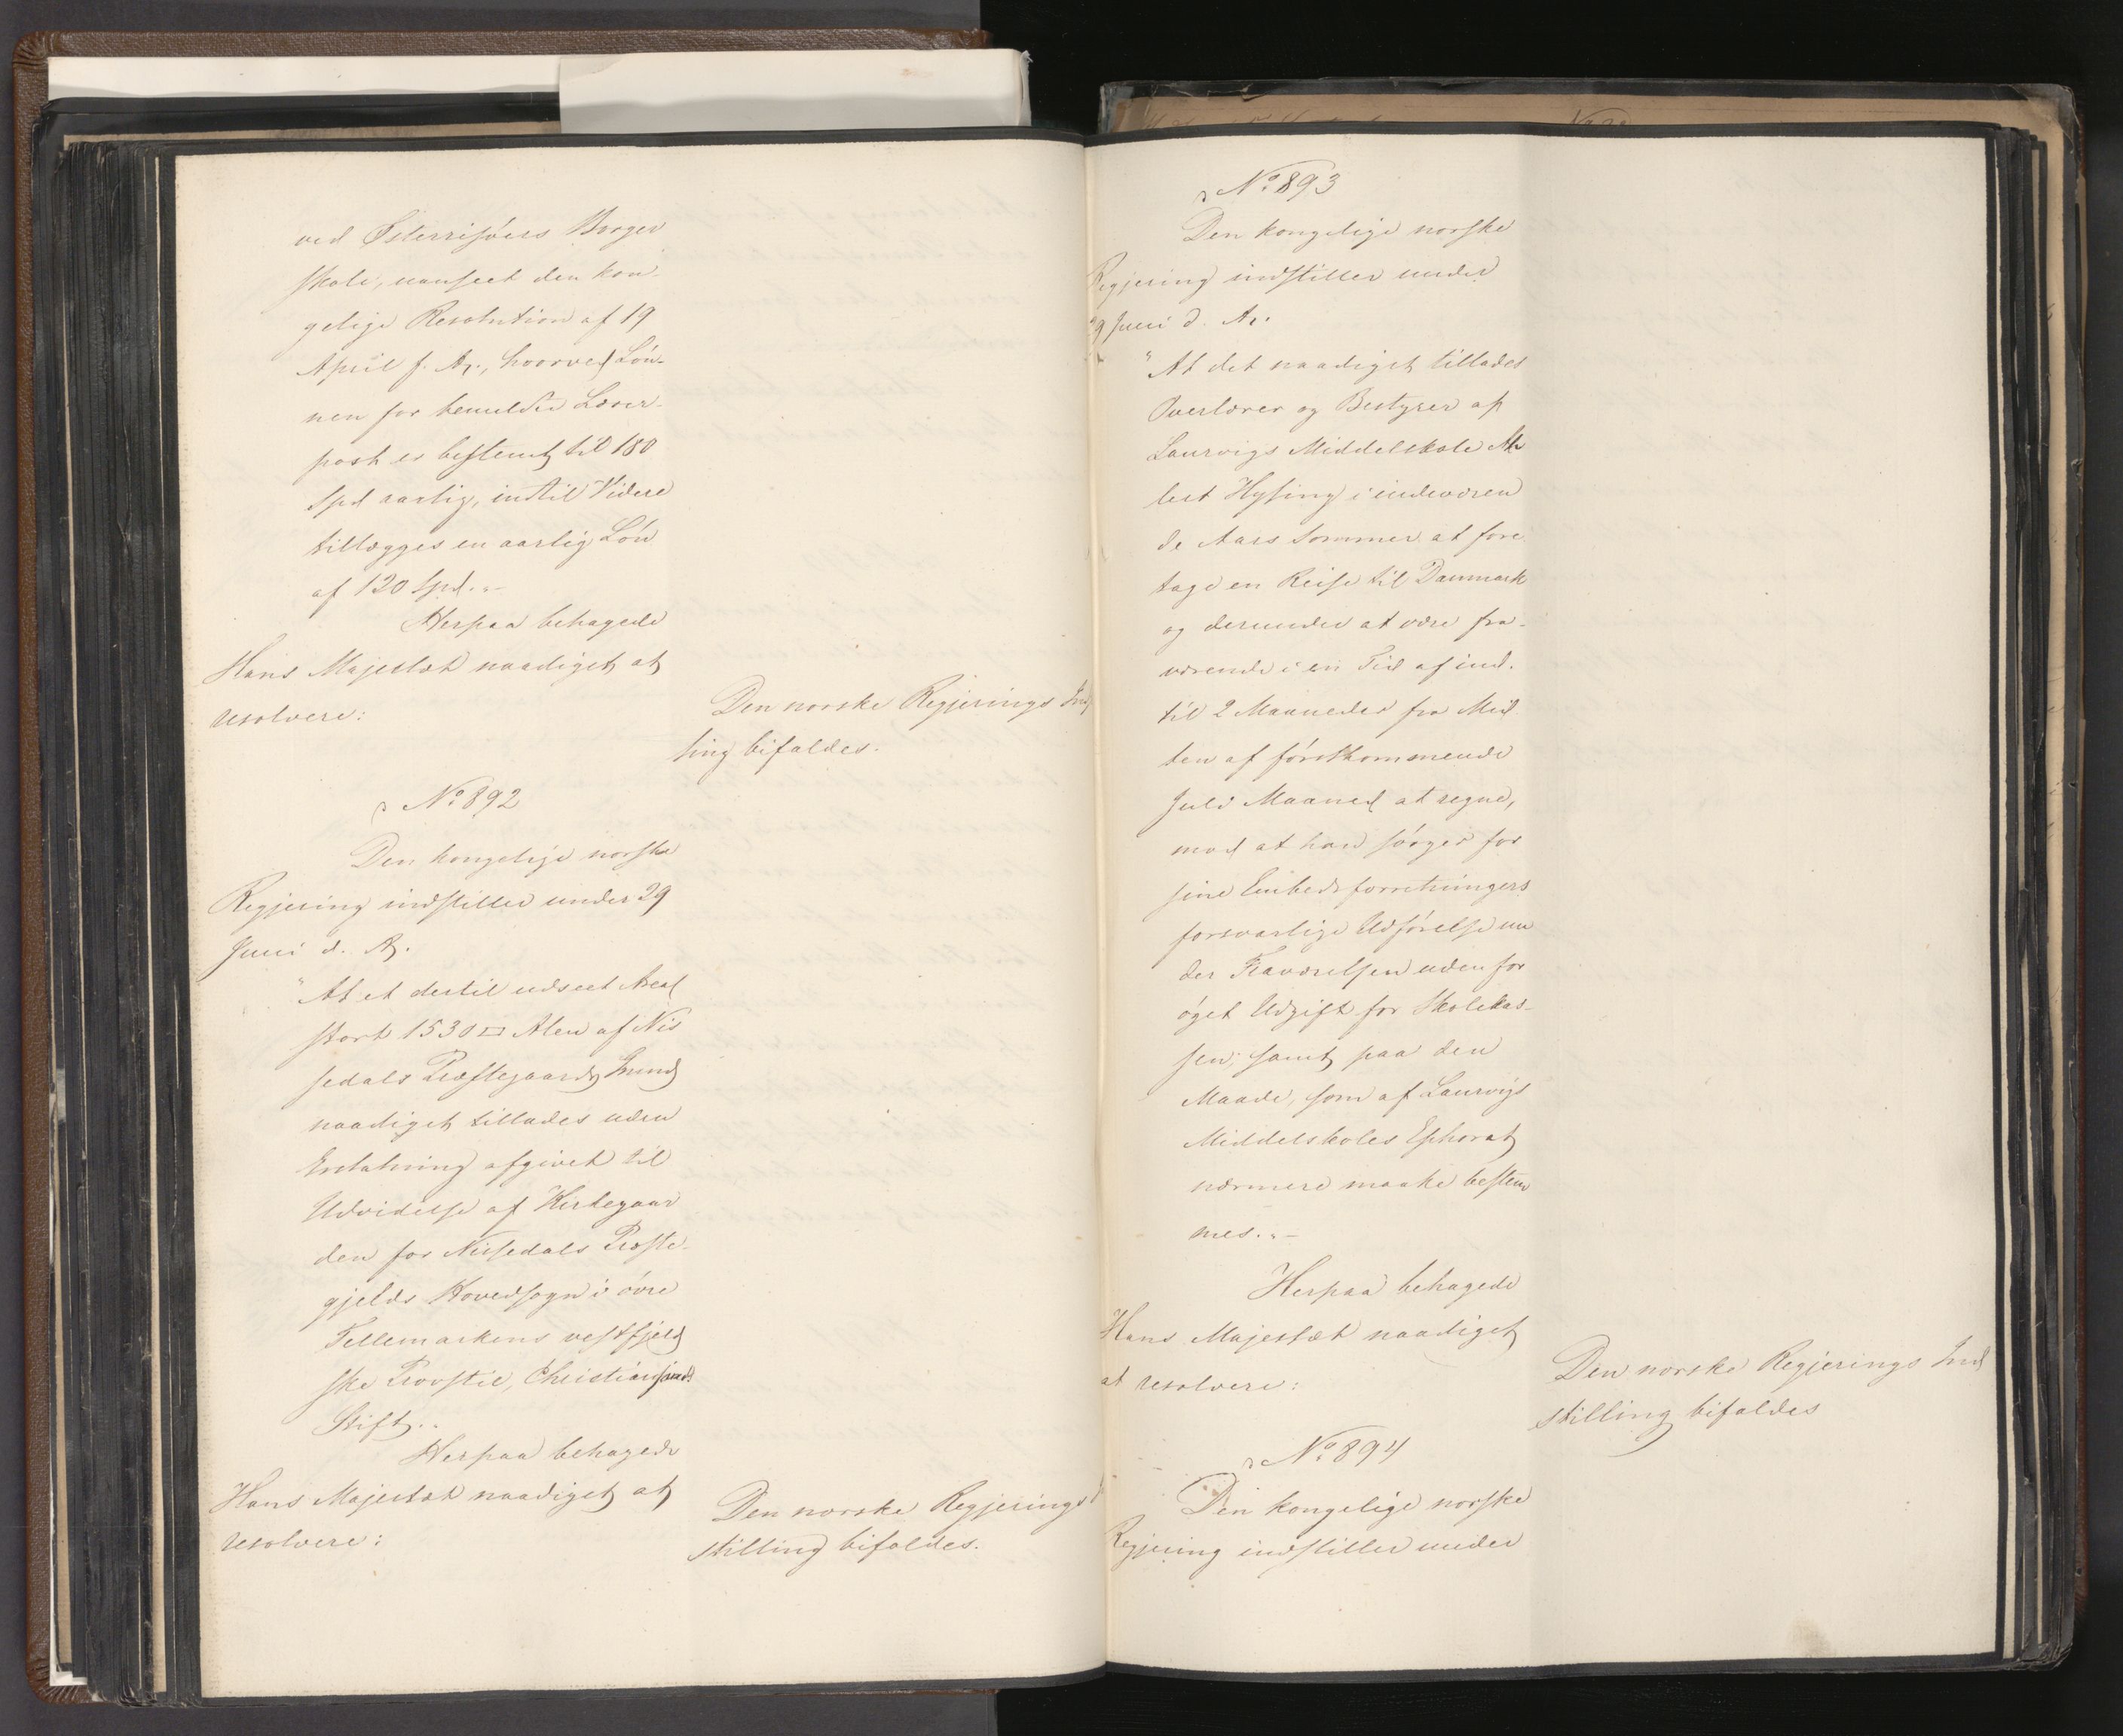 ved Østerrisøers Borger
skole, uanseet den kon-
gelige Resolution af 19
April f. Ar., hvorved Løn-
nen for bemeldte Lærer-
post er bestemt til 180
Spd aarlig, indtil Videre
tillægges en aarlig Løn
af 120 Spd."
Herpaa behagede
Hans Majestæt naadigst at
resolvere:
Den norske Regjerings Ind
ling bifaldes.
No 892
Den kongelige norske
Regjering indstiller under 29
Juni d. A.
"At et dertil udseet Areal
stort 1530 □ Alen af Nis
sedals Præstegaards Grund
naadigst tillades uden
Erstatning afgivet til
Udvidelse af Kirkegaar
den for Nissedals Præste-
gjelds Hovedsogn i øvre
Tellemarkens vestfjeld
ske Provstie, Christianssands
Stift."
Herpaa behagede
Hans Majestæt naadigst at
resolvere:
Den norske Regjerings
stilling bifaldes.
No 893
Den kongelige norske
Regjering indstiller under
29 Juni d. Ar.
"At det naadigst tillades
Overlærer og Bestyrer af
Laurvigs Middelskole
Hysing i indeværen
de Aars Sommer at fore
tage en Reise til Danmark
og derunder at være fra-
værende i en Tid af ind-
til 2 Maaneder fra Mid
ten af førstkommende
Juli Maaned at regne,
mod at han sørger for
sine Embedsforretningers
forsvarlige Udførelse un
der Fraværelsen uden for
øget Udgift for Skolekas-
sen, samt paa den
Maade, som af Laurvigs
Middelskoles Ephorat
nærmere maatte bestem
mes."
Herpaa behagede
Hans Majestæt naadigst
at resolvere:
Den norske Regjerings Ind
stilling bifaldes
No 894
Den kongelige norske
Regjering indstiller under